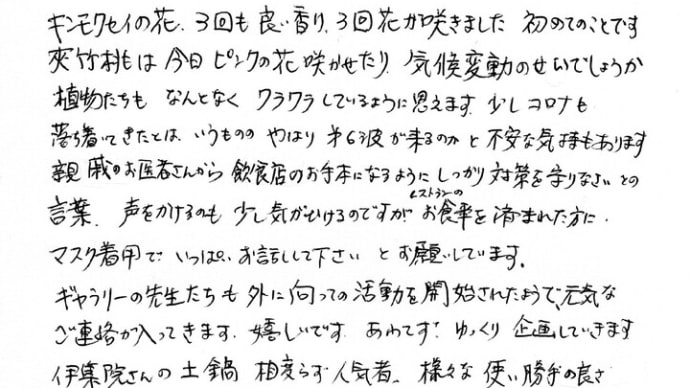 キンモクセイの花、3回も良い香り、3回花が咲きました 初めてのことです
夾竹桃も は今日 ピンクの花 咲かせたり、気候変動のせいでしょうか
植物たちも なんとなく クラクラしているように思えます 少しコロナも
落ち着いてきたとは、いうものの やはり 第6波が来るのかと 不安な気持もあります
親戚のお医者さんから 飲食店のお手本になるように しっかり対策を守りなさいとの
レストランの
言葉、声をかけるのも 少し気がひけるのですが お食事を済まれた方に、
マスク着用で いっぱい お話しして下さい とお願いしています。
ギャラリーの先生たちも 外に向っての活動を開始されたようで、元気な
ご連絡が入ってきます。嬉しいです。あわてず、ゆっくり 企画していきます
伊集院さんの 土鍋 相変らず 人気者。様々な 使い勝手の良さ